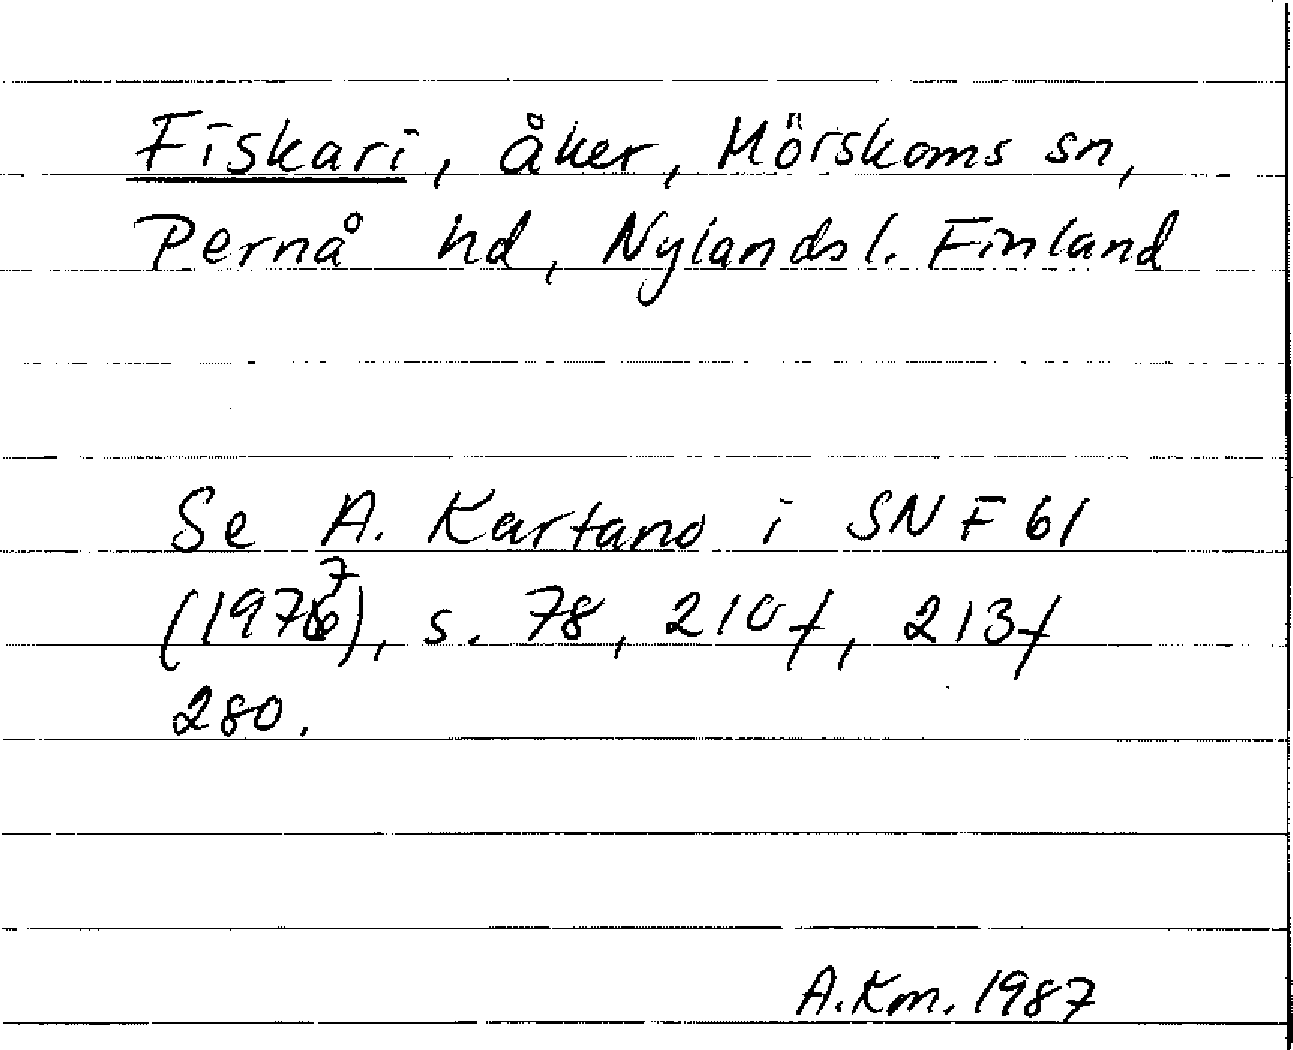 Fiskari, åker, Mörskoms sn,
Pernå hd, Nylands l. Finland
Se A. Kartano i SNF 61
(1977), s. 78, 210f, 213f
280.
A.Km. 1987